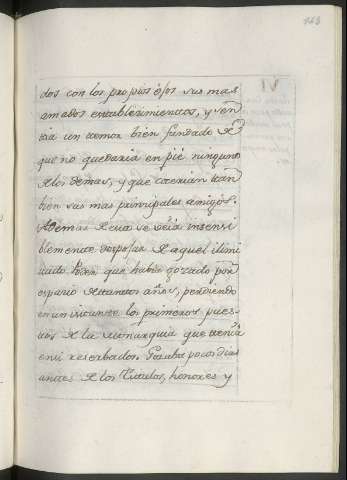 dos con los propios ojos sus mas
amados establecimientos, y sen
tia un temor bien fundado de
que no quedaria en pié ninguno
de los demas, y que caerian tam
bien sus mas principales amigos.
Ademas de esto se veía insensi
blemente despojar de aquel ilimi
tado Poder que habia gozado por
espacio de tantos años, perdiendo
en un instante los primeros pues
tos de la Monarquia que tenia
en sí reservados. Gozaba pocos dias
antes de los Titulos, honores y